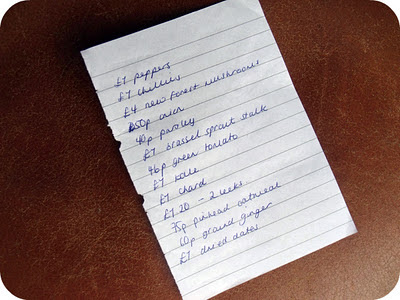 £1 peppers
£1 chillies
£4 new forest mushrooms
50p onion
40p parsley
£1 brussel sprout stalk
46p green tomato
£1 kale
£1 chard
£1.20 - 2 leeks
75p pinhead oatmeal
60p ground ginger
£1 dried dates